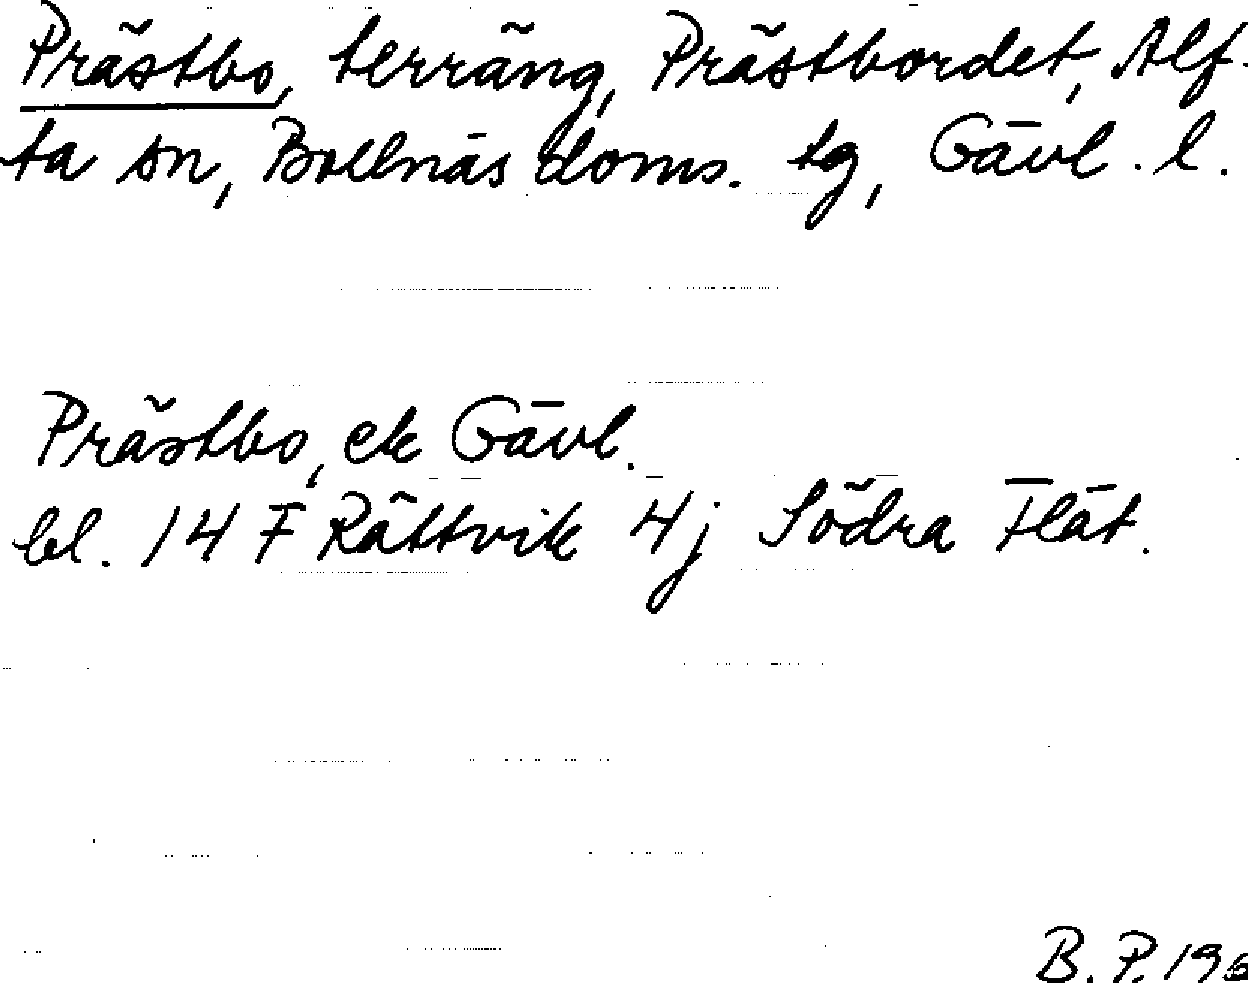 Prästbo, terräng, Prästbordet, Alf-
ta sn, Bollnäs doms. tg, Gävl. l.
Prästbo, ek Gävl.
bl. 14 F Rättvik 4j Södra Flät.
B. P.